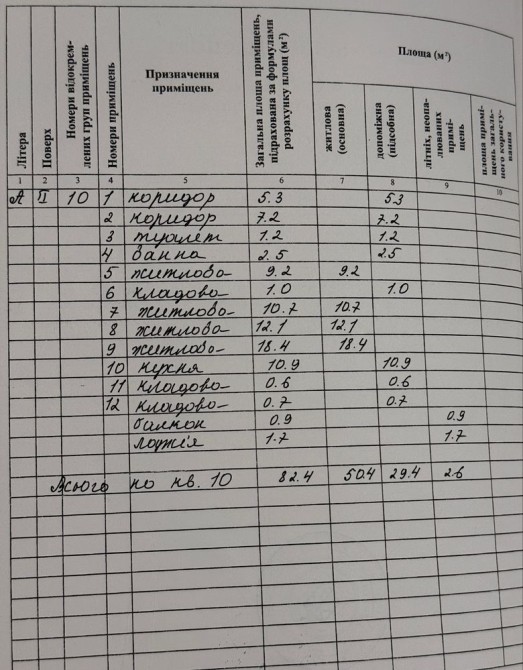 Літера
Поверх
Номери відокрем-
лених груп приміщень
Номери приміщень
Призначення
приміщень
Загальна площа приміщень,
підрахована за формулами
розрахунку площ (м²)
Площа (м²)
житлова
(основна)
допоміжна
(підсобна)
літніх, неопа-
люваних
примі-
щень
площа примі-
щень загаль-
ного користу-
вання
1 2 3 4 5 6 7 8 9 10
А II 10 1 коридор 5.3 5.3
2 коридор 7.2 7.2
3 туалет 1.2 1.2
4 ванна 2.5 2.5
5 житлова 9.2 9.2
6 кладова 1.0 1.0
7 житлова 10.7 10.7
8 житлова 12.1 12.1
9 житлова 18.4 18.4
10 кухня 10.9 10.9
11 кладова 0.6 0.6
12 кладова 0.7 0.7
балкон 0.9 0.9
лоджія 1.7 1.7
Всього по кв. 10 82.4 50.4 29.4 2.6